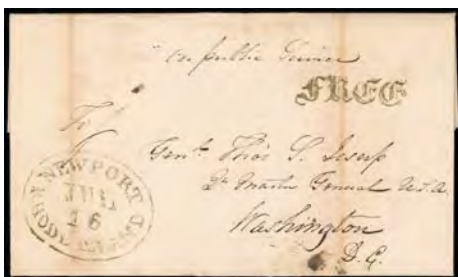 "on public Service
FREE
To
Genl. Thos. S. Jesup
Qr Master General U.S.A.
Washington
D.C.
NEWPORT
JUL
16
RHODE ISLAND